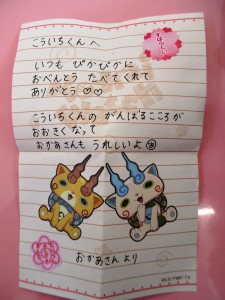 こういちくんへ
いつも ぴかぴかに
おべんとう たべてくれて
ありがとう♡♡
こういちくんの がんばるこころが
おおきくなって
おかあさんも うれしいよ
おかあさんより